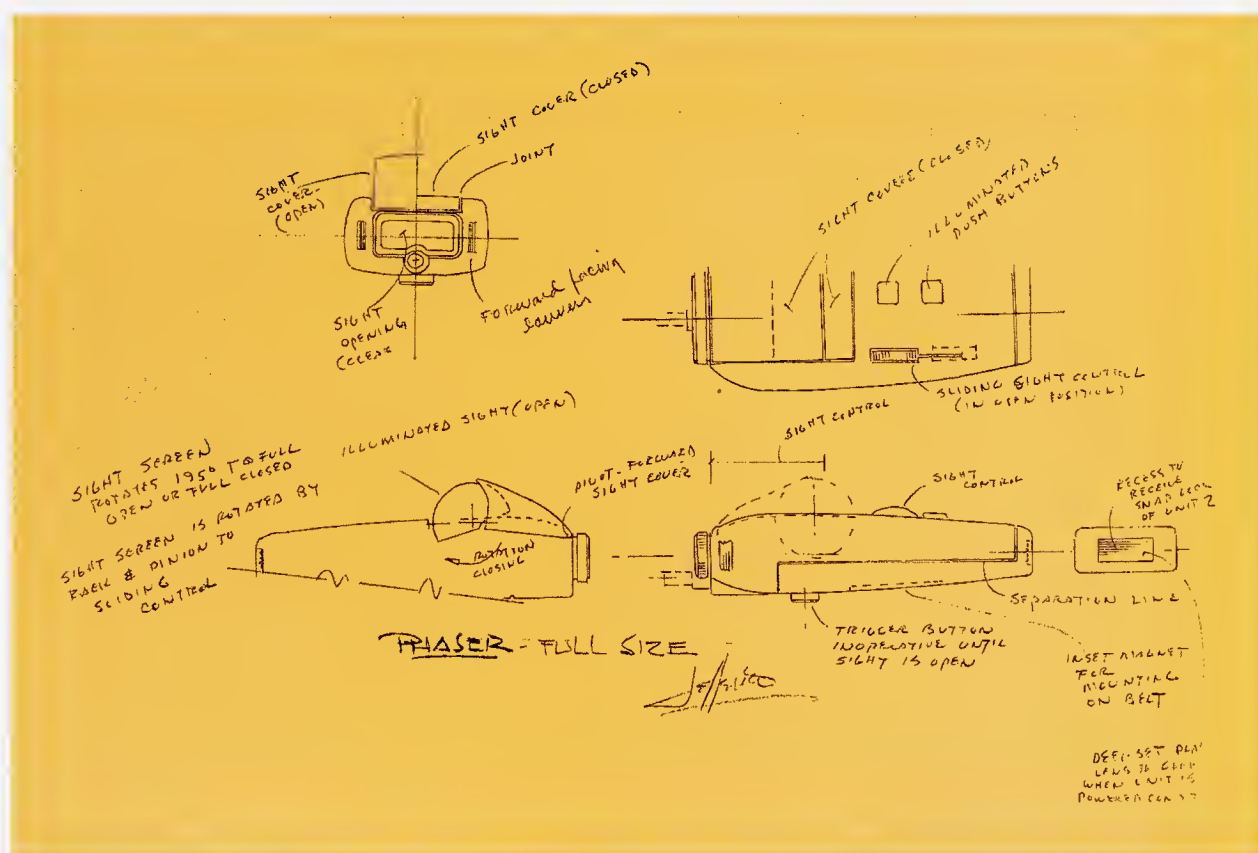 SIGHT COVER (CLOSED)
JOINT
SIGHT
COVER-
(OPEN)
SIGHT
OPENING
FORWARD facing
louvers
SIGHT COVERS (CLOSED)
ILLUMINATED
PUSH BUTTONS
SLIDING SIGHT CONTROL
(IN OPEN POSITION)
SIGHT SCREEN
ROTATES 195° TO FULL
OPEN OR FULL CLOSED
SIGHT SCREEN IS ROTATED BY
RACK & PINION TO
SLIDING
CONTROL
ILLUMINATED SIGHT (OPEN)
PIVOT-FORWARD
SIGHT COVER
ROTATION
CLOSING
SIGHT CONTROL
SIGHT
CONTROL
RECESS TO
RECEIVE
SNAP
OF UNIT 2
SEPARATION LINE
TRIGGER BUTTON
INOPERATIVE UNTIL
SIGHT IS OPEN
INSET MAGNET
FOR
MOUNTING
ON BELT
PHASER - FULL SIZE
DEEP-SET
LENS TO
WHEN UNIT IS
POWERED